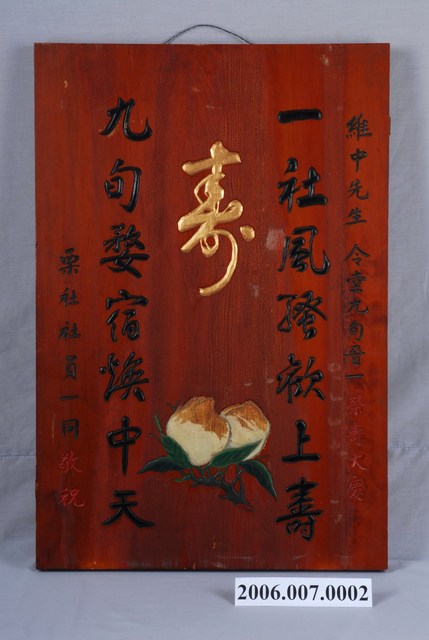 維中先生 令堂九旬晉一榮壽大慶
一社風騷歡上壽
壽
九旬婺宿煥中天
栗社社員一同敬祝
2006.007.0002